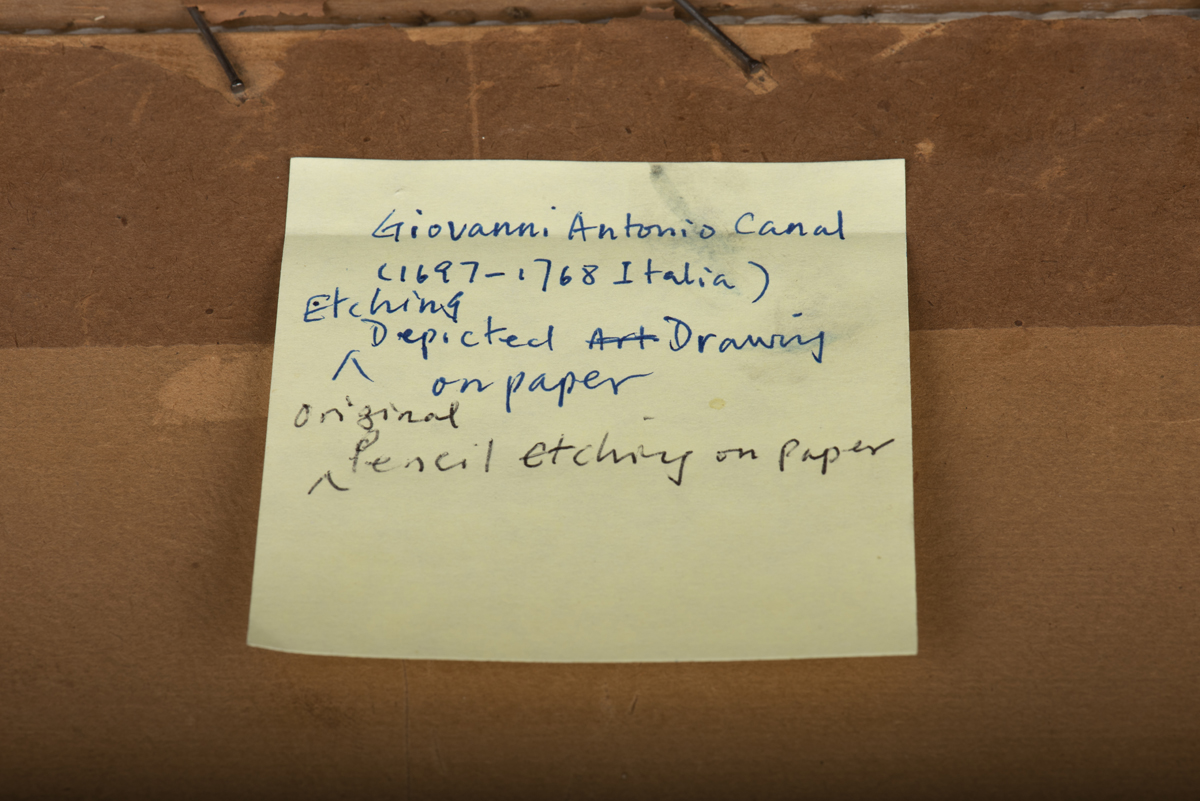 Giovanni Antonio Canal
(1697-1768 Italia)
Etching
Depicted Art Drawing
on paper
Original
Pencil Etching on paper